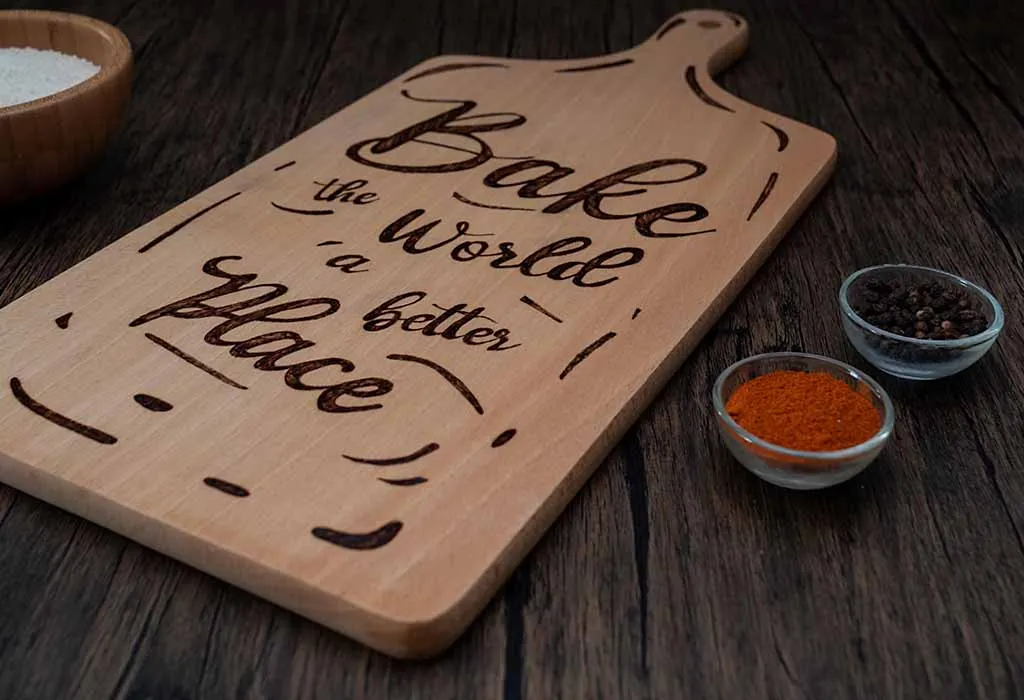 Bake
the World
a better
Place